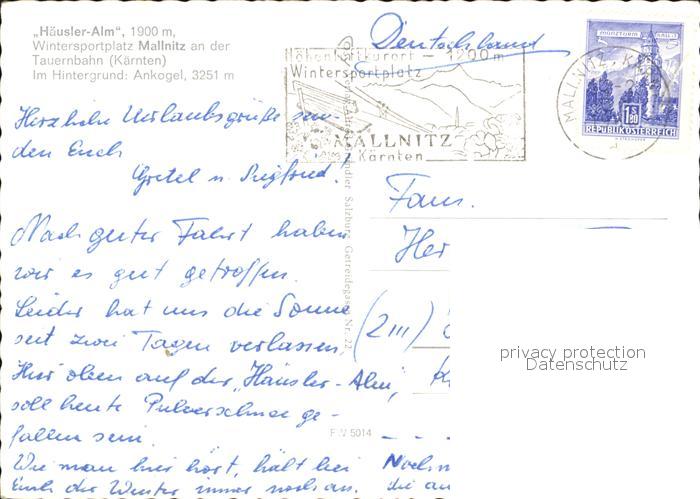 „Häusler-Alm", 1900 m,
Wintersportplatz Mallnitz an der
Tauernbahn (Kärnten)
Im Hintergrund: Ankogel, 3251 m
Deutschland
Höhenluftkurort – 1200 m
Wintersportplatz
MALLNITZ
Kärnten
MALLNITZ, K
MÜNZTURM, HALL i. T.
1S80
REPUBLIK ÖSTERREICH
Herzliche Urlaubsgrüße sen-
den Euch
Gretel u. Siegfried.
Nach guter Fahrt haben
wir es gut getroffen.
Leider hat uns die Sonne
seit zwei Tagen verlassen.
Hier oben auf der „Häusler-Alm,
soll heute Pulverschnee ge-
fallen sein.
Wie man hier hört, hält bei
Euch der Winter immer noch an.
Salzburg, Getreidegasse Nr. 22
F W 5014
Fam.
Her
(2111)
Noch
die
privacy protection
Datenschutz